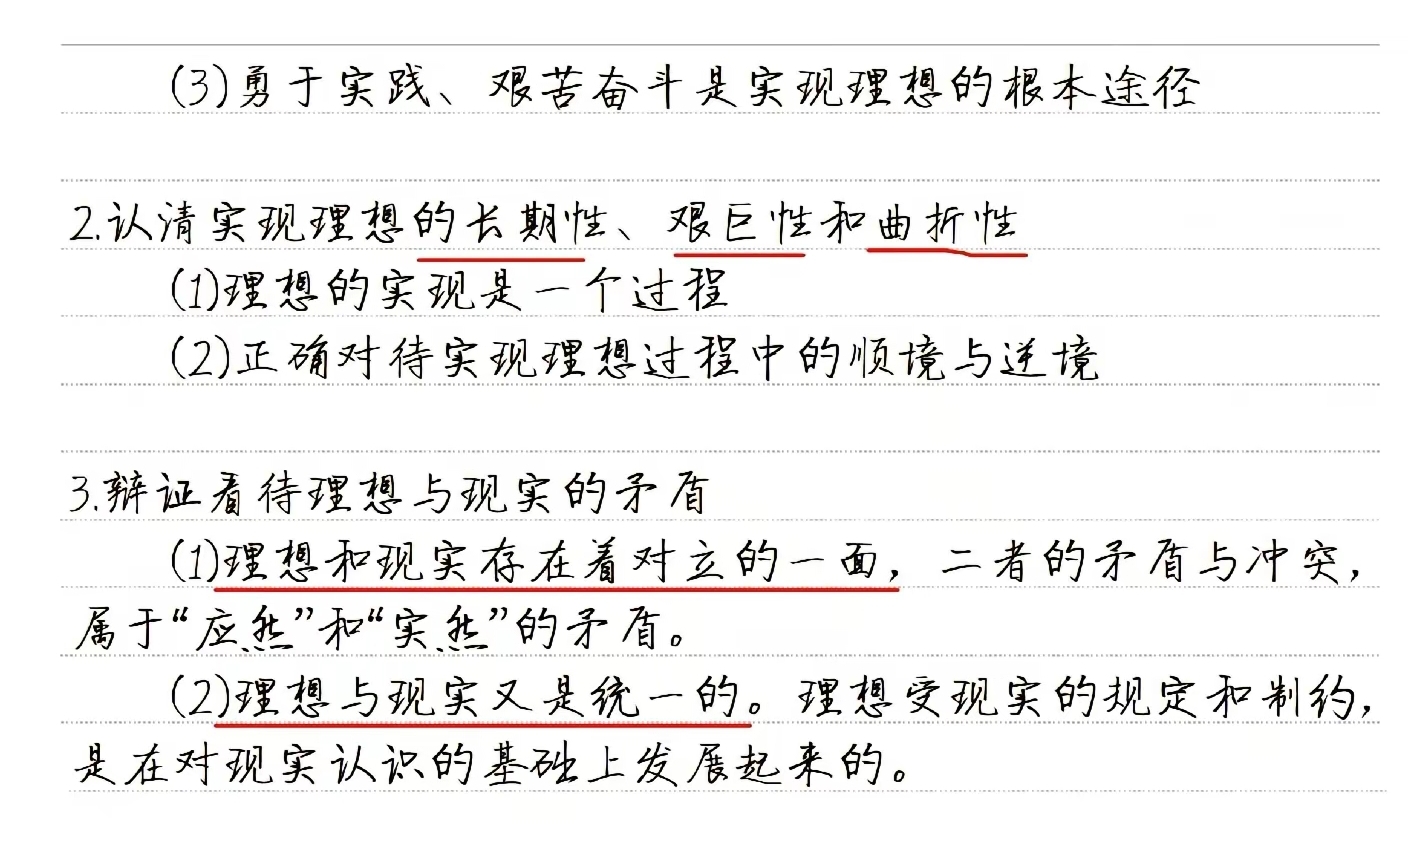 (3)勇于实践、艰苦奋斗是实现理想的根本途径
2.认清实现理想的长期性、艰巨性和曲折性
(1)理想的实现是一个过程
(2)正确对待实现理想过程中的顺境与逆境
3.辩证看待理想与现实的矛盾
(1)理想和现实存在着对立的一面，二者的矛盾与冲突，
属于“应然”和“实然”的矛盾。
(2)理想与现实又是统一的。理想受现实的规定和制约，
是在对现实认识的基础上发展起来的。